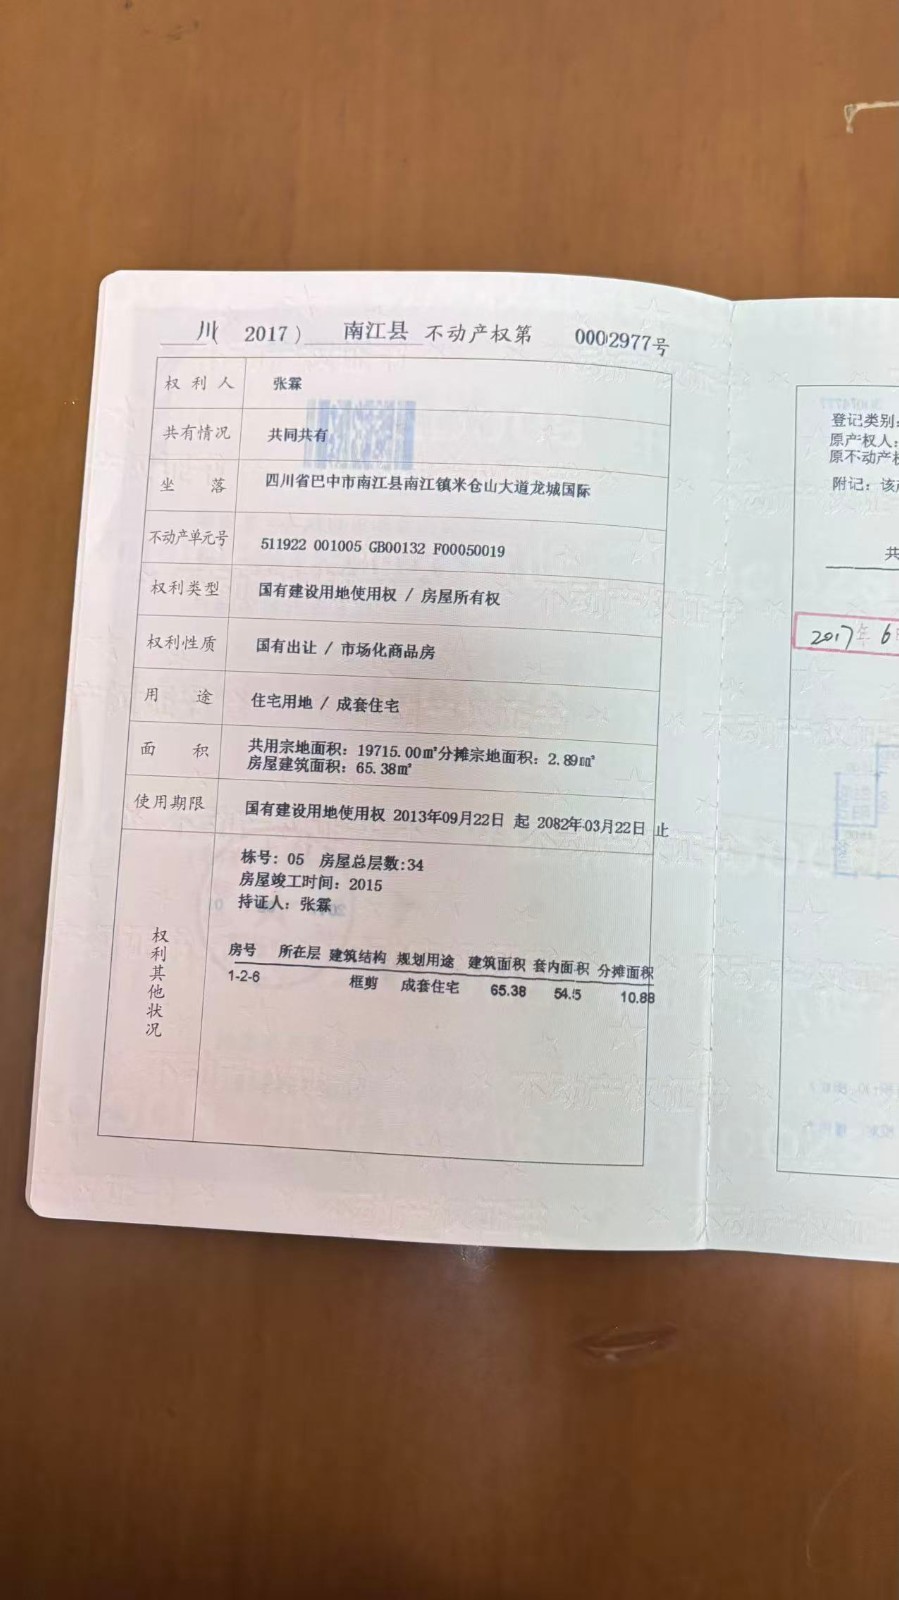 川( 2017 ) 南江县 不动产权第 0002977号
权利人 张霖
共有情况 共同共有
坐落 四川省巴中市南江县南江镇米仓山大道龙城国际
不动产单元号 511922 001005 GB00132 F00050019
权利类型 国有建设用地使用权 / 房屋所有权
权利性质 国有出让 / 市场化商品房
用途 住宅用地 / 成套住宅
面积 共用宗地面积：19715.00㎡分摊宗地面积：2.89㎡
房屋建筑面积：65.38㎡
使用期限 国有建设用地使用权 2013年09月22日 起 2082年03月22日 止
权利其他状况
栋号：05 房屋总层数:34
房屋竣工时间：2015
持证人：张霖
房号 所在层 建筑结构 规划用途 建筑面积 套内面积 分摊面积
1-2-6 框剪 成套住宅 65.38 54.5 10.88
登记类别:
原产权人:
原不动产权
附记：该
共
2017年6